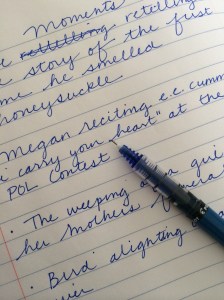 Moments
retelling retelling
story of the first
he smelled
honeysuckle
Megan reciting e.e. cumm
carry your heart" at the
POL Contest
• The weeping
her mother's funeral
• Bird alighting